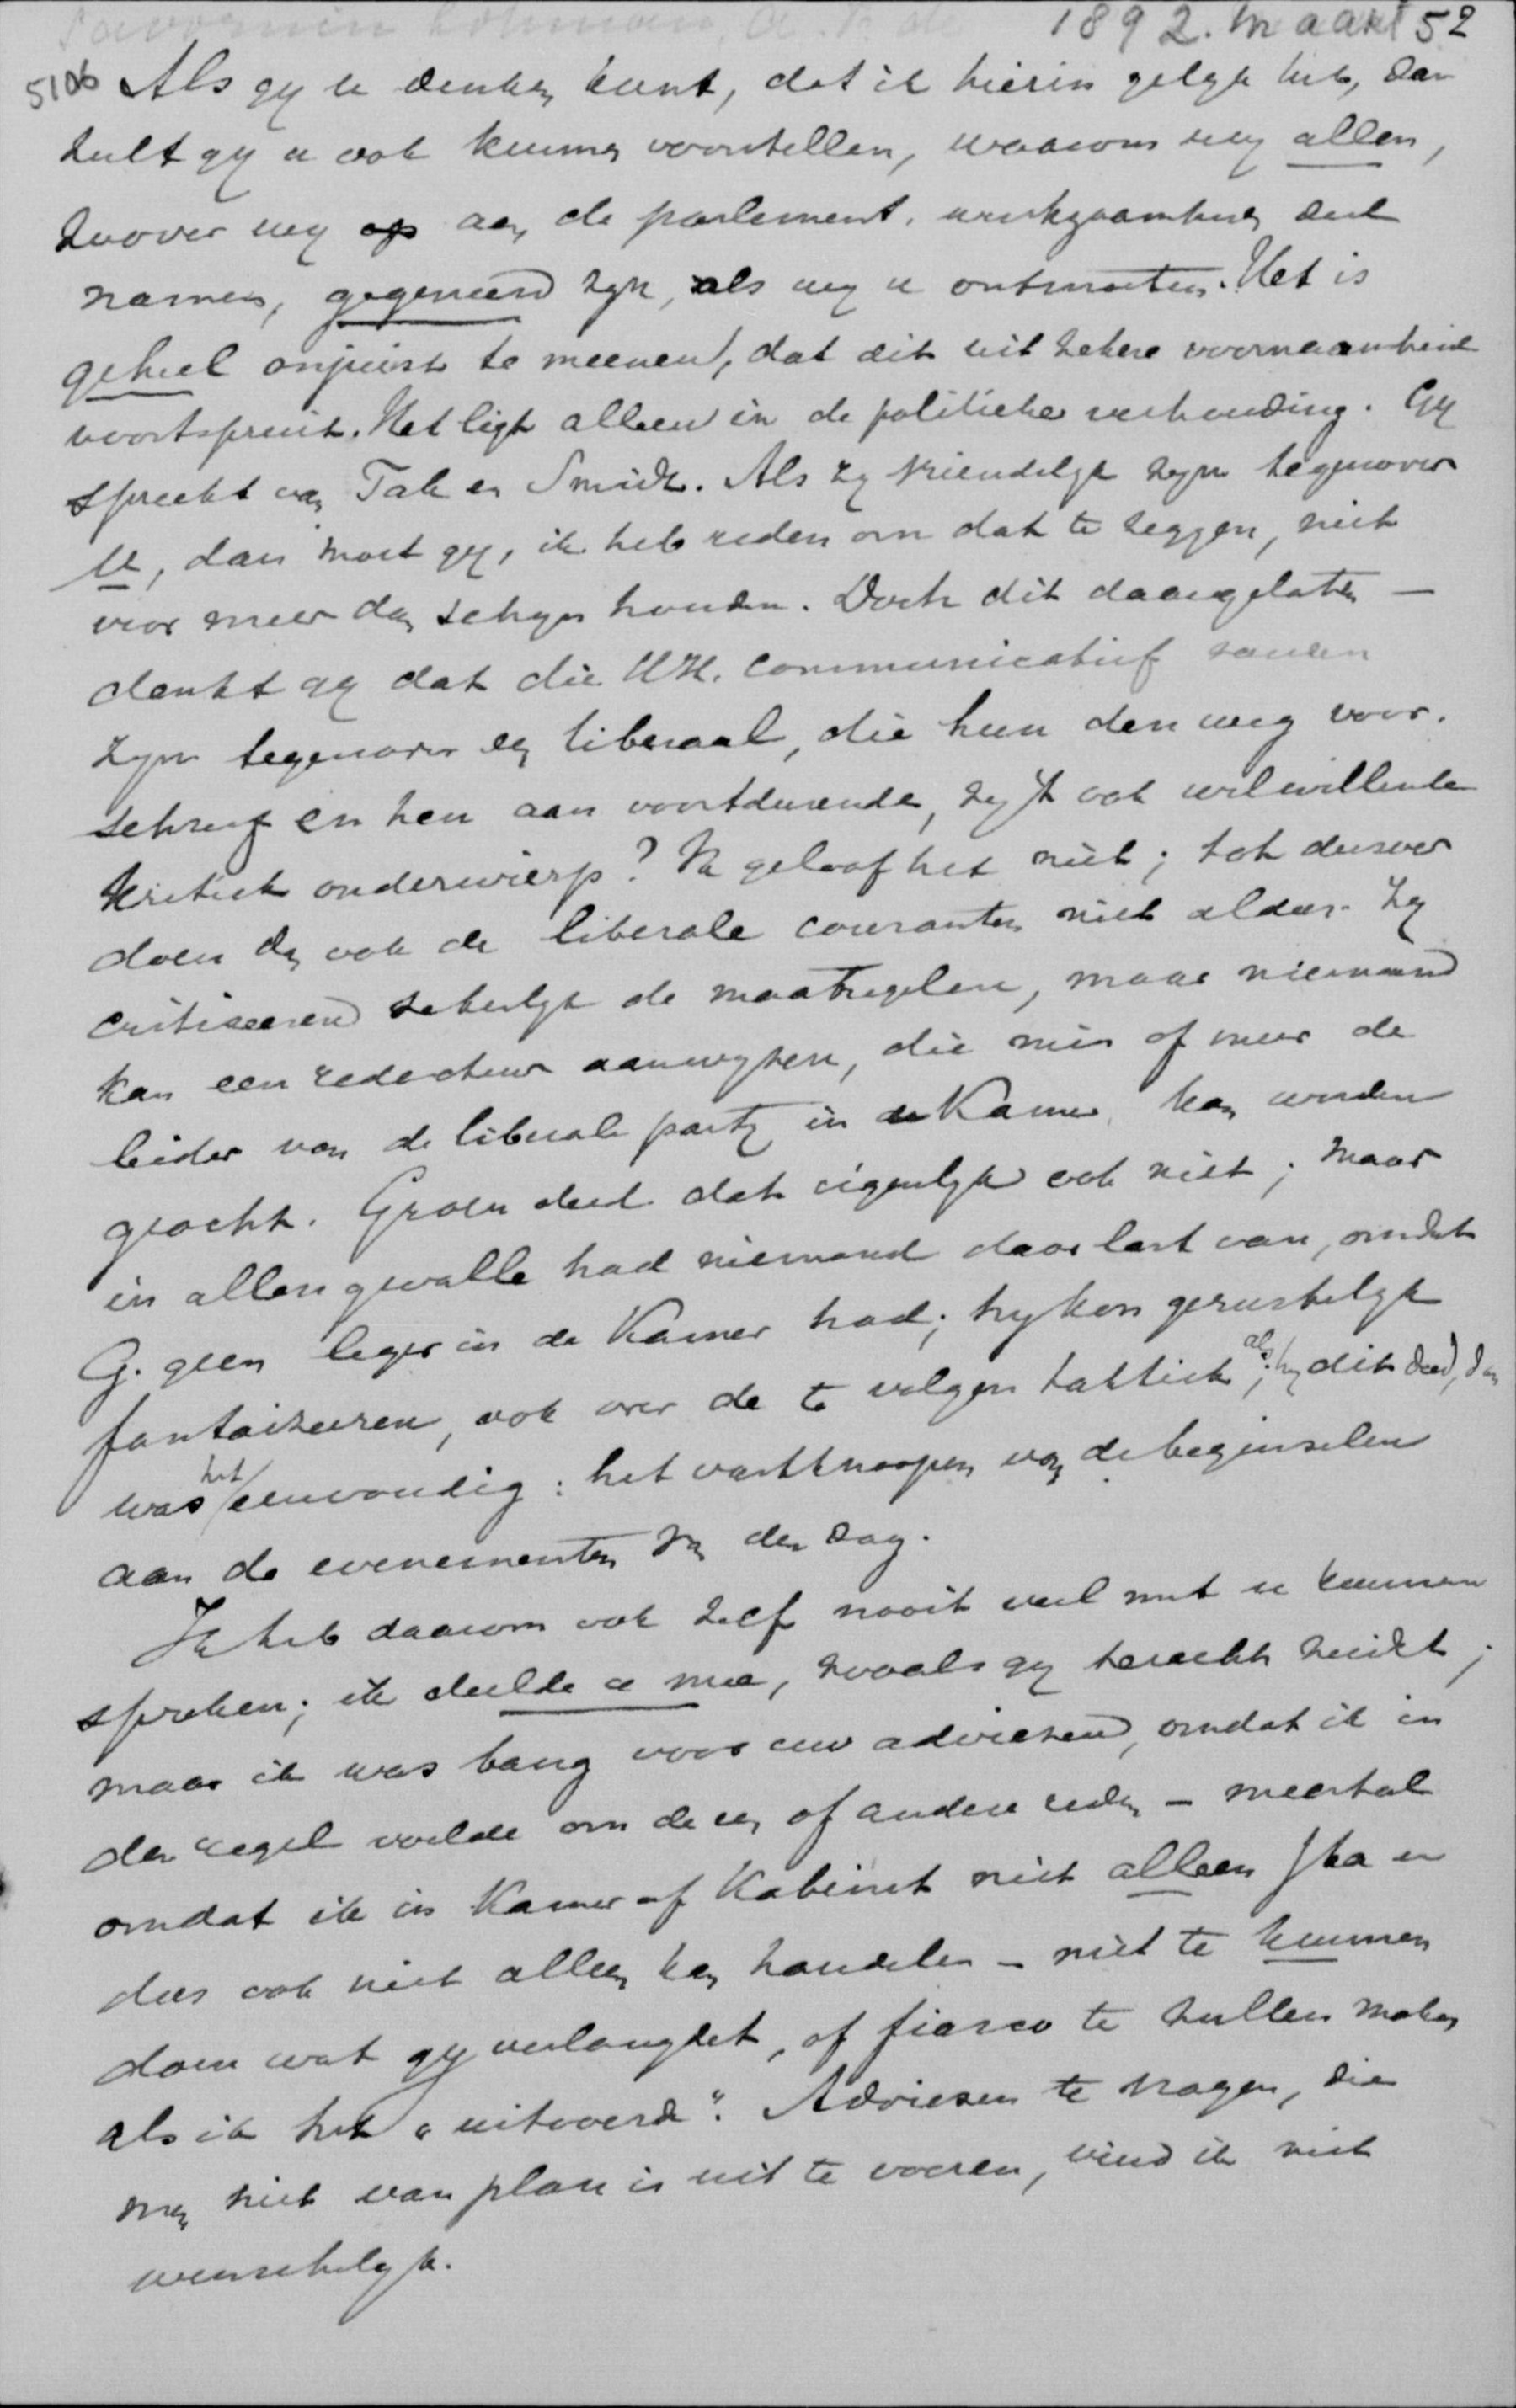 Savornin Lohman, A. F. de 1892. Maart 52
5106 Als gy u denken kunt, dat ik hierin gelyk heb, dan
zult gy u ook kunnen voorstellen, waarom wy allen,
zoover wy op aan de parlement. werkzaamheden deel
namen, gegeneerd zyn, als wy u ontmoeten. Het is
geheel onjuist te meenen, dat dit uit zekere voornaamheid
voortspruit. Het ligt alleen in de politieke verhouding. Gy
spreekt van Tak en Smidt. Als zy vriendelyk zyn tegenover
U, dan moet gy, ik heb reden om dat te zeggen, niet
voor meer dan schyn houden. Doch dit daargelaten —
denkt gy dat die HH. communicatief zouden
zyn tegenover een liberaal, die hun den weg voor-
schreef en hen aan voortdurende, zy 't ook welwillende
kritiek onderwierp? Ik geloof het niet; tot dusver
doen dan ook de liberale couranten niet aldus. Zy
critiseeren dadelyk de maatregelen, maar niemand
kan een redacteur aanwyzen, die min of meer de
leider van de liberale party in de Kamer kan worden
geacht. Groen deed dat eigenlyk ook niet; maar
in allen gevalle had niemand daar last van, omdat
G. geen leger in de Kamer had; hy kon gerustelyk
fantaiseeren, ook over de te volgen taktiek; als hy dit deed, dan
was het eenvoudig: het vastknoopen van de beginselen
aan de evenementen van den dag.
Ik heb daarom ook zelf nooit veel met u kunnen
spreken; ik deelde u mee, zooals gy terecht zeidet;
maar ik was bang voor uw adviezen, omdat ik in
den regel voelde om de een of andere reden — meestal
omdat ik in Kamer of Kabinet niet alleen sta en
dus ook niet alleen kan handelen — niet te kunnen
doen wat gy verlangdet, of fiasco te zullen maken
als ik het „uitvoerde". Adviezen te vragen, die
men niet van plan is uit te voeren, vind ik niet
wenschelyk.